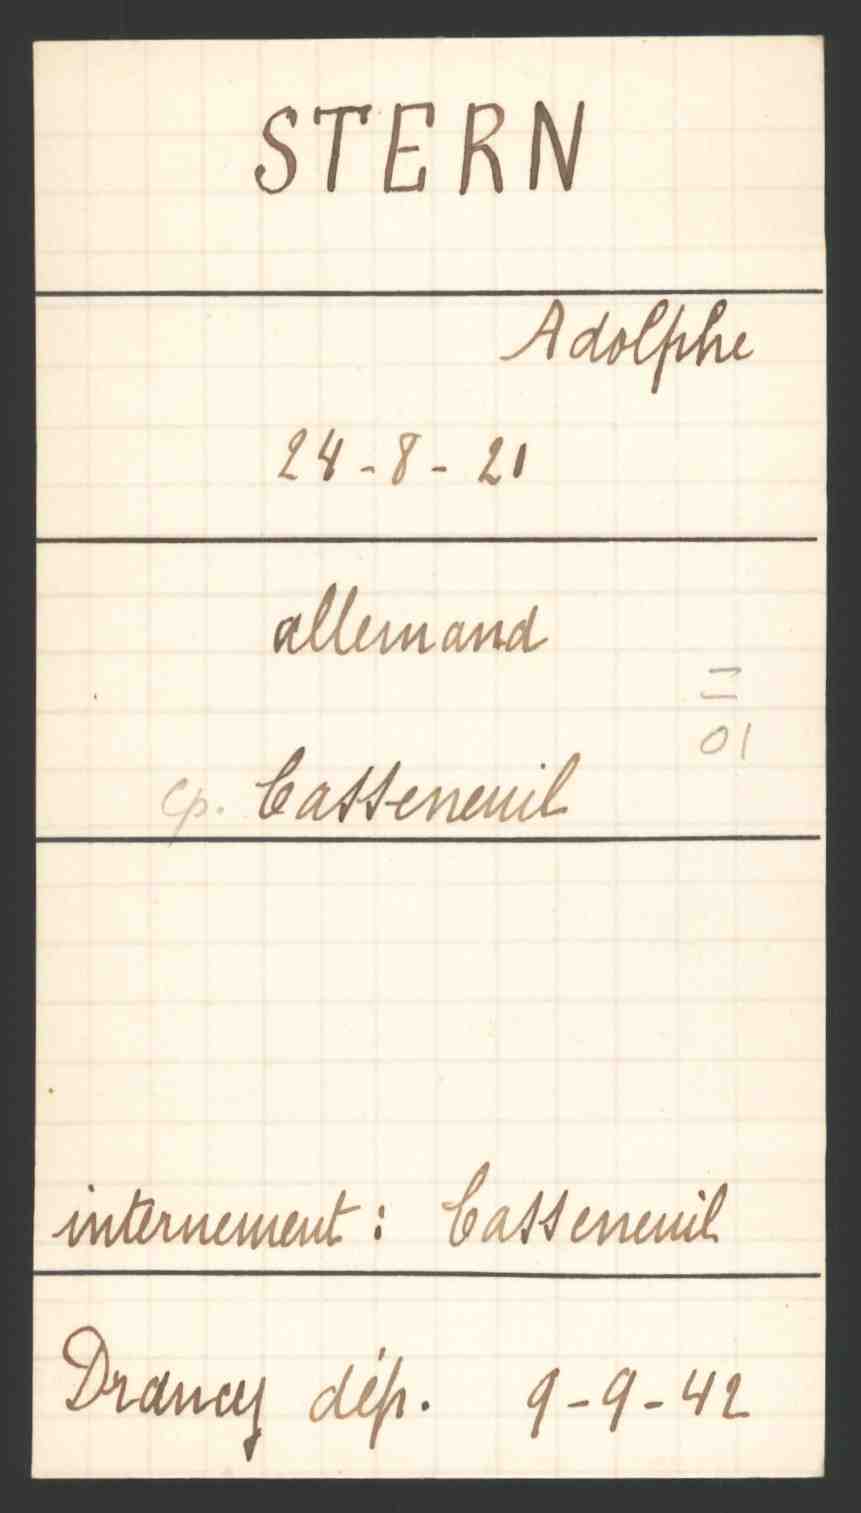 STERN
Adolphe
24-8-21
allemand
01
cp. Casseneuil
internement : Casseneuil
Drancy dép. 9-9-42